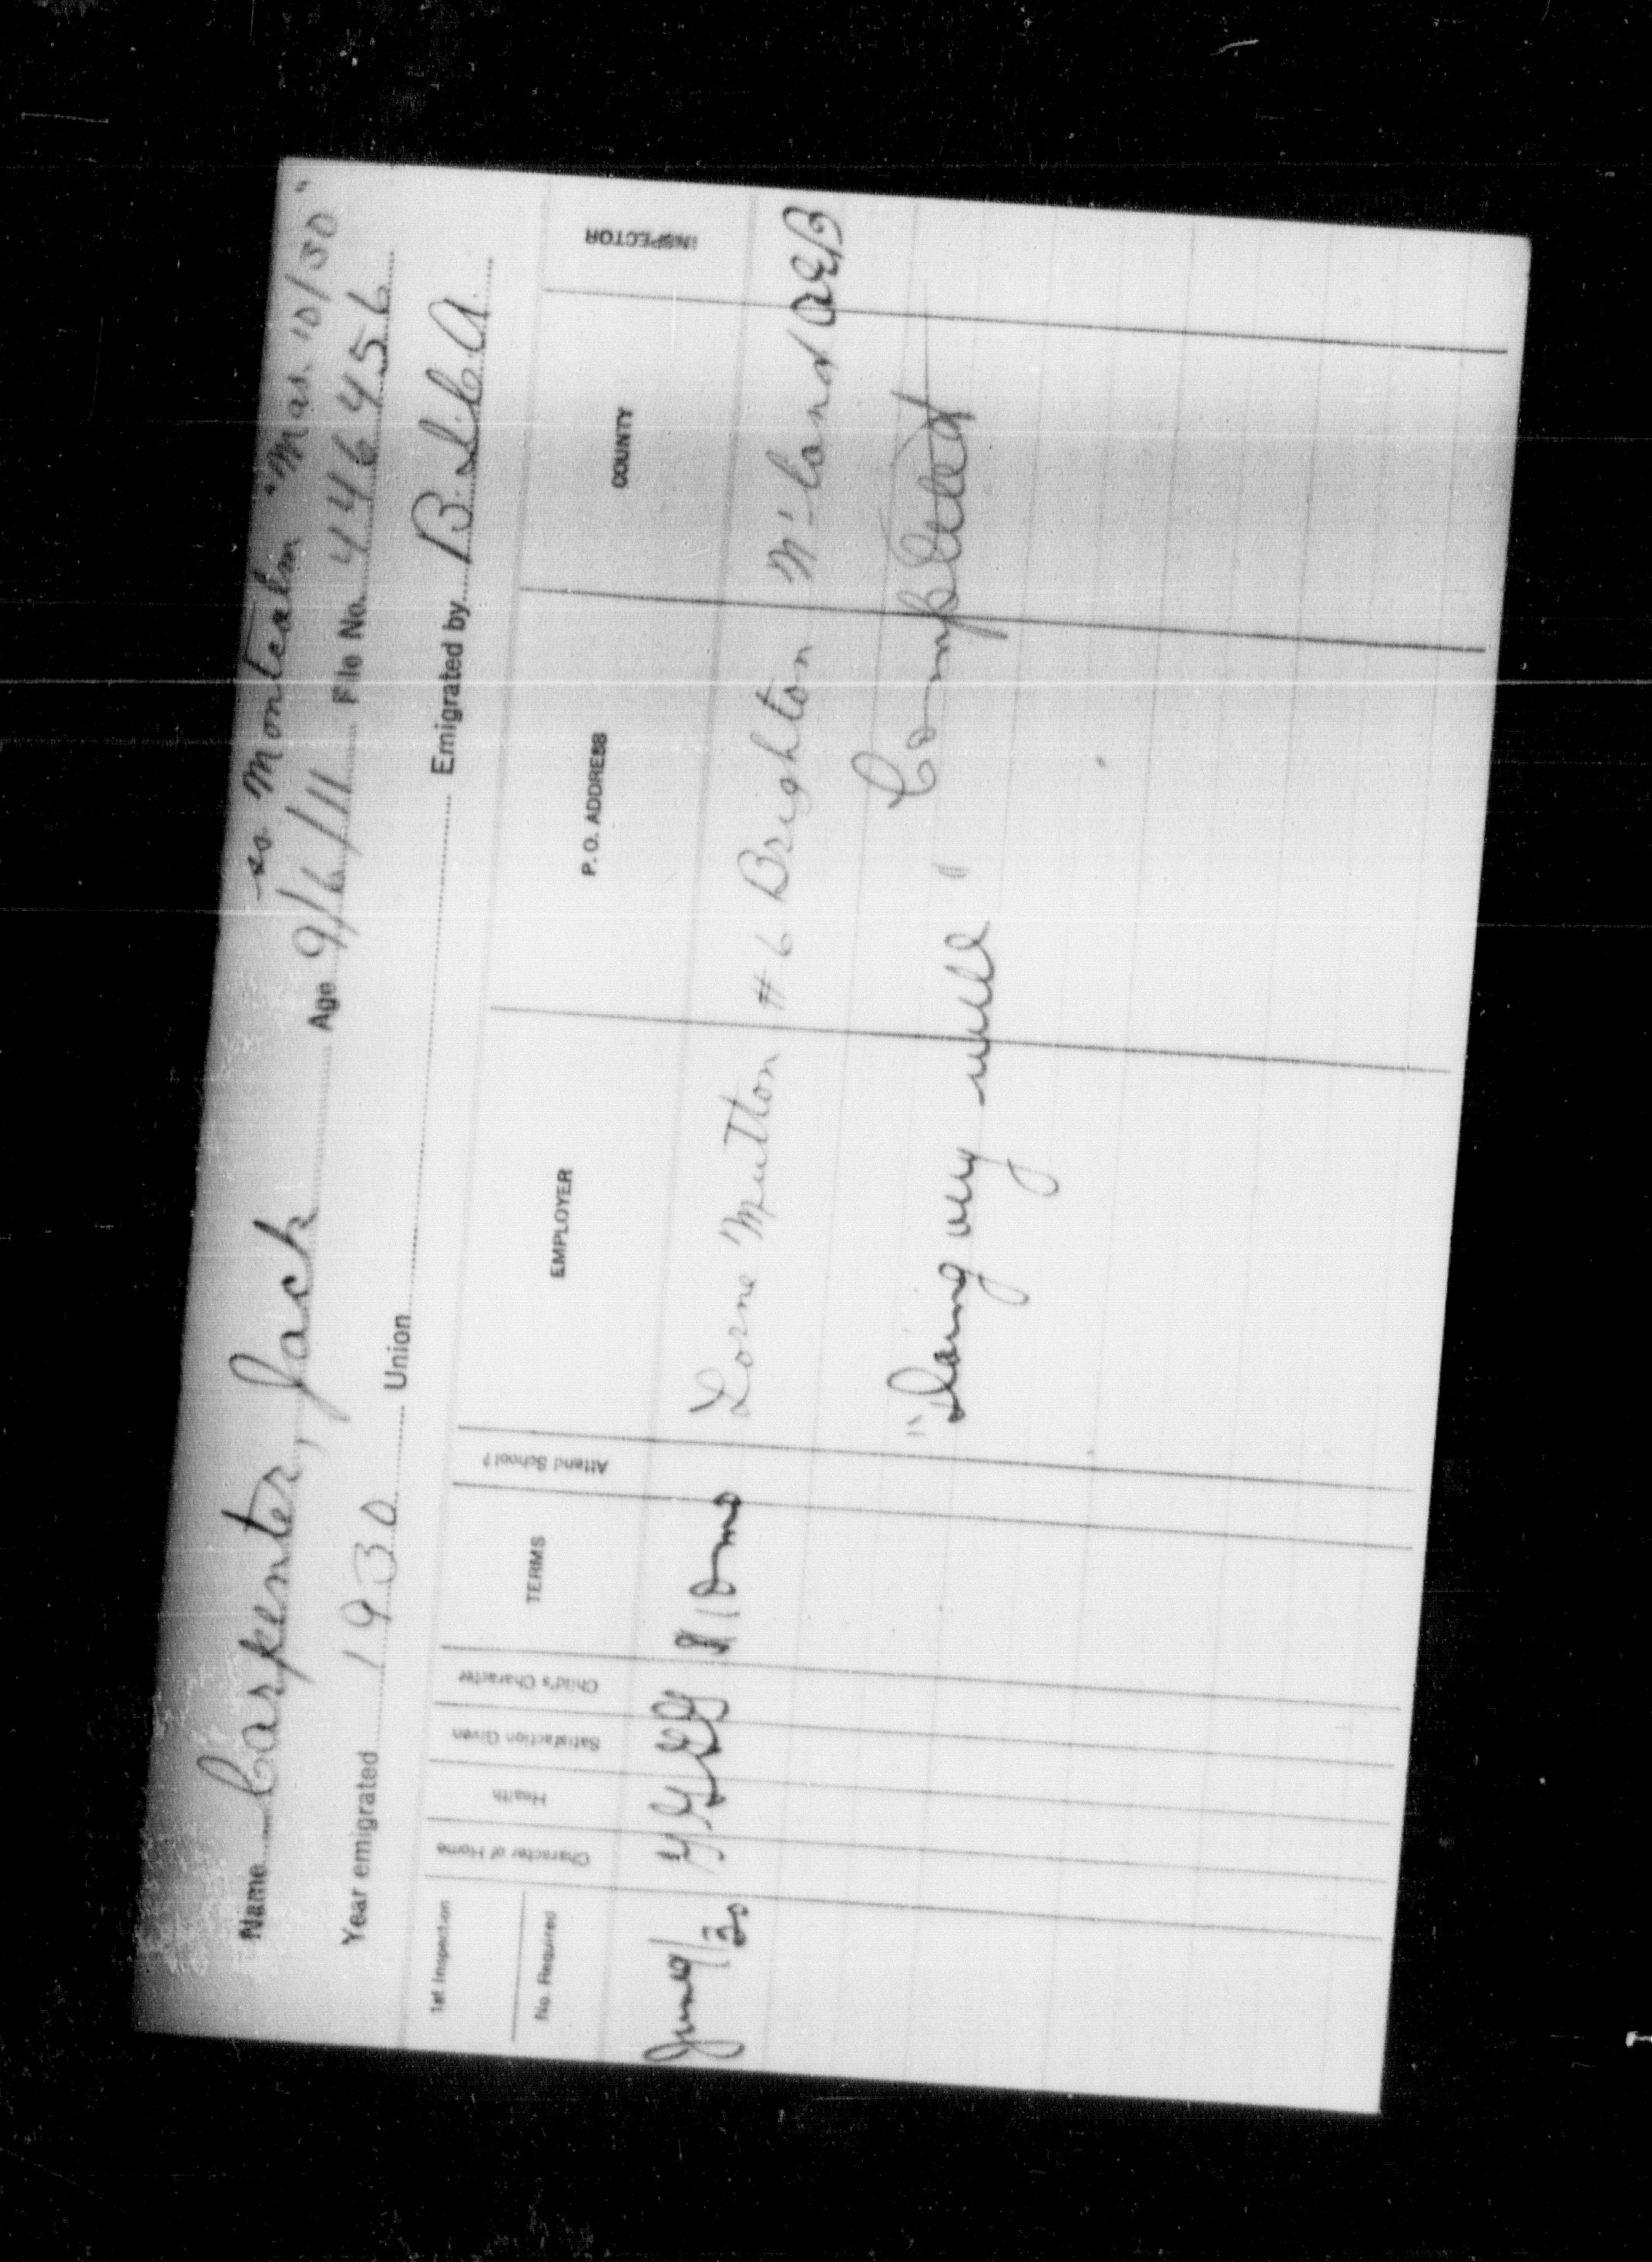 ss Montcalm "Mar. 10/30"
Name Carpenter, Jack Age 9/6/11 File No. 446456
Year emigrated 1930 Union Emigrated by B.I.C.A.
1st Inspection
No. Required
Character of Home
Health
Satisfaction Given
Child's Character
TERMS
Attend School?
EMPLOYER
P. O. ADDRESS
COUNTY
INSPECTOR
June 9/30 10 mo Lorne Mutton #6 Brighton N'land
"Doing very well" Completed